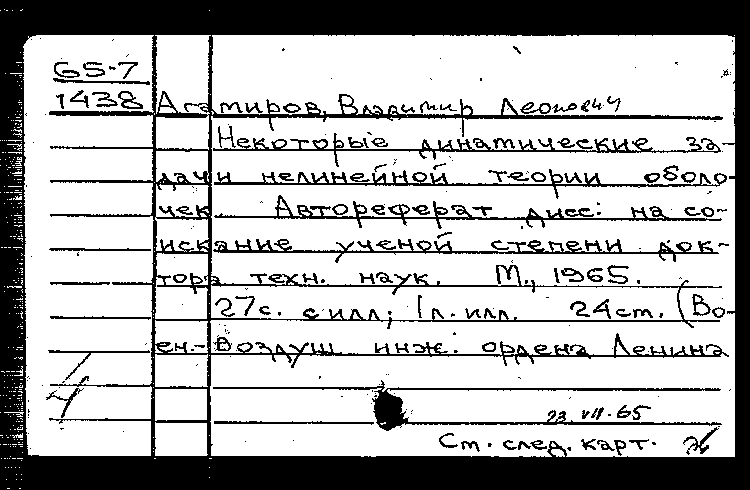 65-7
1438 Агамиров, Владимир Леонович
Некоторые динамические за-
дачи нелинейной теории оболо-
чек. Автореферат дисс. на со-
искание ученой степени док-
тора техн. наук. М., 1965.
27с. с илл; 1л. илл. 24см. (Во-
ен.-воздуш инж. ордена Ленина
23.VII.65
См. след. карт.